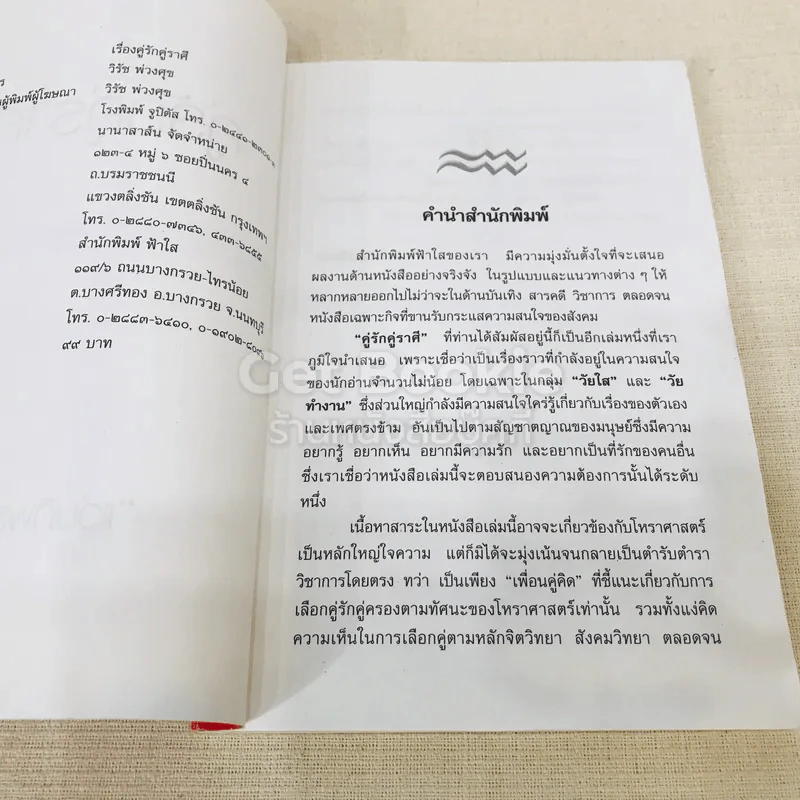 เรื่องคู่รักคู่ราศี
วิรัช พ่วงศุข
ผู้พิมพ์ผู้โฆษณา วิรัช พ่วงศุข
โรงพิมพ์ จูปิตัส โทร. ๐-๒๔๔๐-๒๓๐๑-๓
นานาสาส์น จัดจำหน่าย
๑๒๓-๔ หมู่ ๖ ซอยปิ่นนคร ๔
ถ.บรมราชชนนี
แขวงตลิ่งชัน เขตตลิ่งชัน กรุงเทพฯ
โทร. ๐-๒๘๘๐-๗๓๔๖, ๔๓๓-๖๘๕๕
สำนักพิมพ์ ฟ้าใส
๑๑๙/๖ ถนนบางกรวย-ไทรน้อย
ต.บางศรีทอง อ.บางกรวย จ.นนทบุรี
โทร. ๐-๒๘๘๓-๖๔๑๐, ๐-๑๙๐๒-๘๐๙๖
๙๙ บาท
คำนำสำนักพิมพ์
สำนักพิมพ์ฟ้าใสของเรา มีความมุ่งมั่นตั้งใจที่จะเสนอ
ผลงานด้านหนังสืออย่างจริงจัง ในรูปแบบและแนวทางต่าง ๆ ให้
หลากหลายออกไปไม่ว่าจะในด้านบันเทิง สารคดี วิชาการ ตลอดจน
หนังสือเฉพาะกิจที่ขานรับกระแสความสนใจของสังคม
“คู่รักคู่ราศี” ที่ท่านได้สัมผัสอยู่นี้ก็เป็นอีกเล่มหนึ่งที่เรา
ภูมิใจนำเสนอ เพราะเชื่อว่าเป็นเรื่องราวที่กำลังอยู่ในความสนใจ
ของนักอ่านจำนวนไม่น้อย โดยเฉพาะในกลุ่ม “วัยใส” และ “วัย
ทำงาน” ซึ่งส่วนใหญ่กำลังมีความสนใจใคร่รู้เกี่ยวกับเรื่องของตัวเอง
และเพศตรงข้าม อันเป็นไปตามสัญชาตญาณของมนุษย์ซึ่งมีความ
อยากรู้ อยากเห็น อยากมีความรัก และอยากเป็นที่รักของคนอื่น
ซึ่งเราเชื่อว่าหนังสือเล่มนี้จะตอบสนองความต้องการนั้นได้ระดับ
หนึ่ง
เนื้อหาสาระในหนังสือเล่มนี้อาจจะเกี่ยวข้องกับโหราศาสตร์
เป็นหลักใหญ่ใจความ แต่ก็มิได้จะมุ่งเน้นจนกลายเป็นตำรับตำรา
วิชาการโดยตรง ทว่า เป็นเพียง “เพื่อนคู่คิด” ที่ชี้แนะเกี่ยวกับการ
เลือกคู่รักคู่ครองตามทัศนะของโหราศาสตร์เท่านั้น รวมทั้งแง่คิด
ความเห็นในการเลือกคู่ตามหลักจิตวิทยา สังคมวิทยา ตลอดจน
Get Bookie
ร้านหนังสือบุ๊คกี้